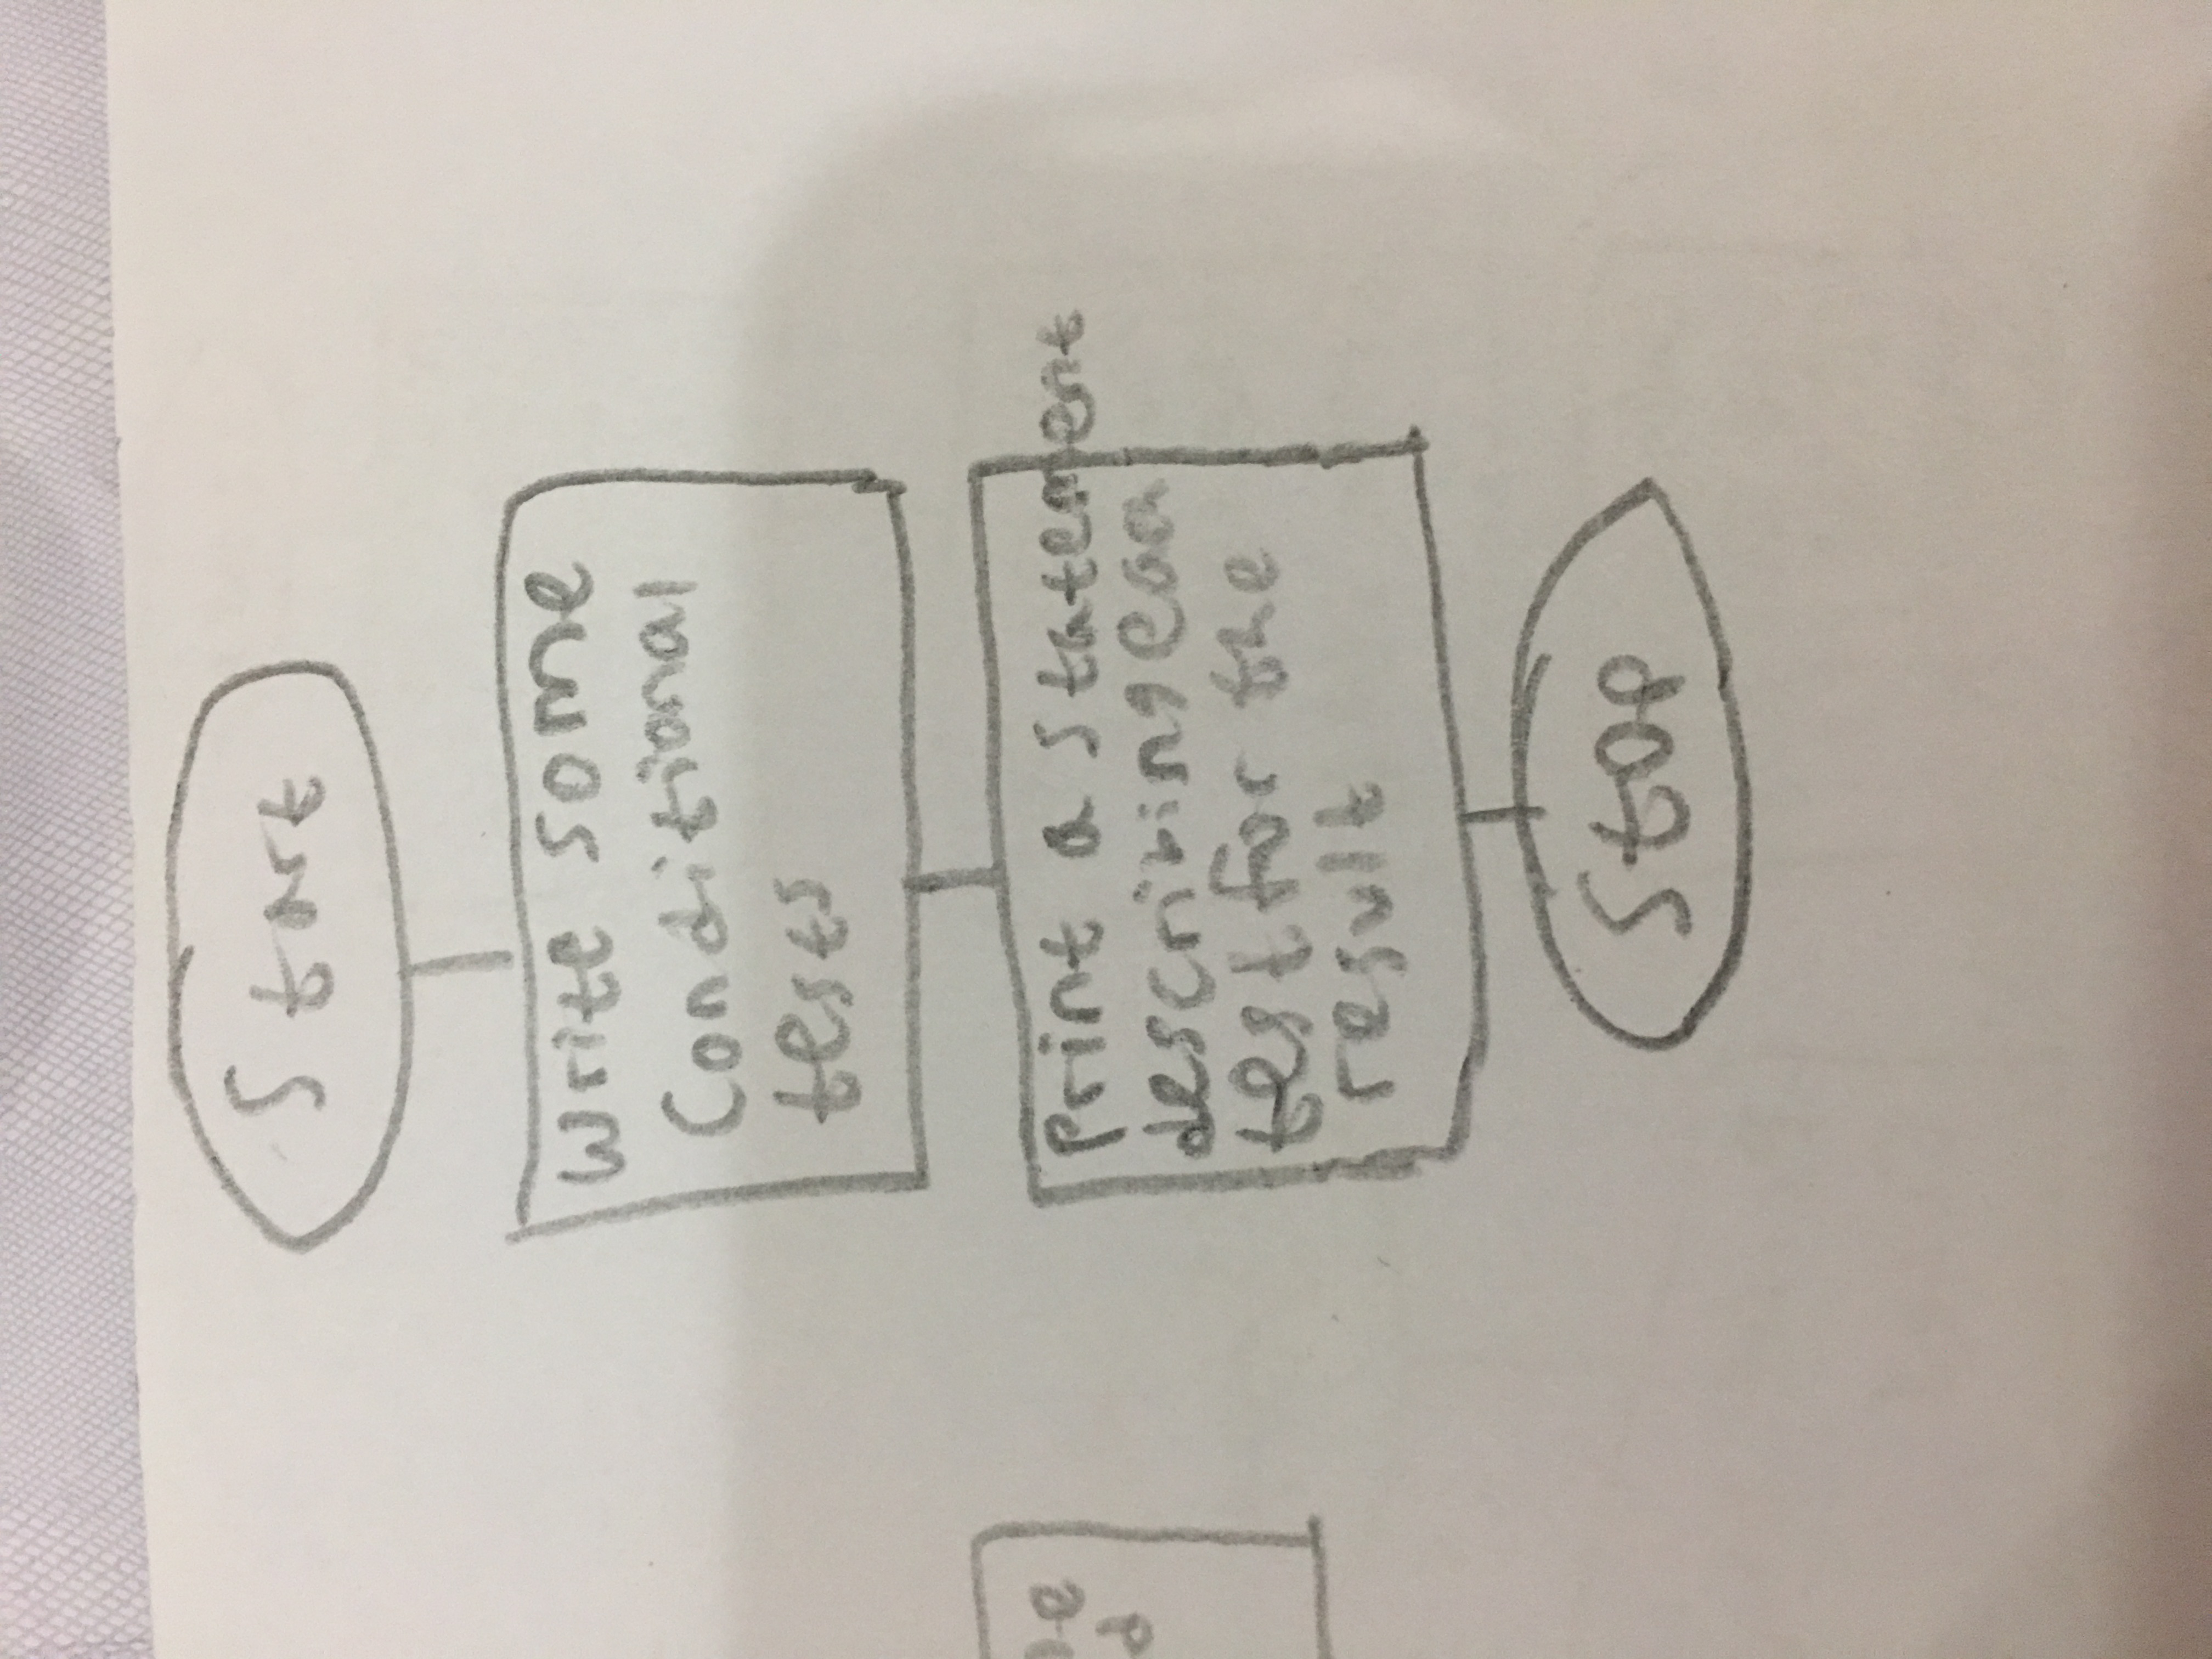 Start
Write some
Conditional
tests
Print a statement
describing each
test for the
result
Stop
d